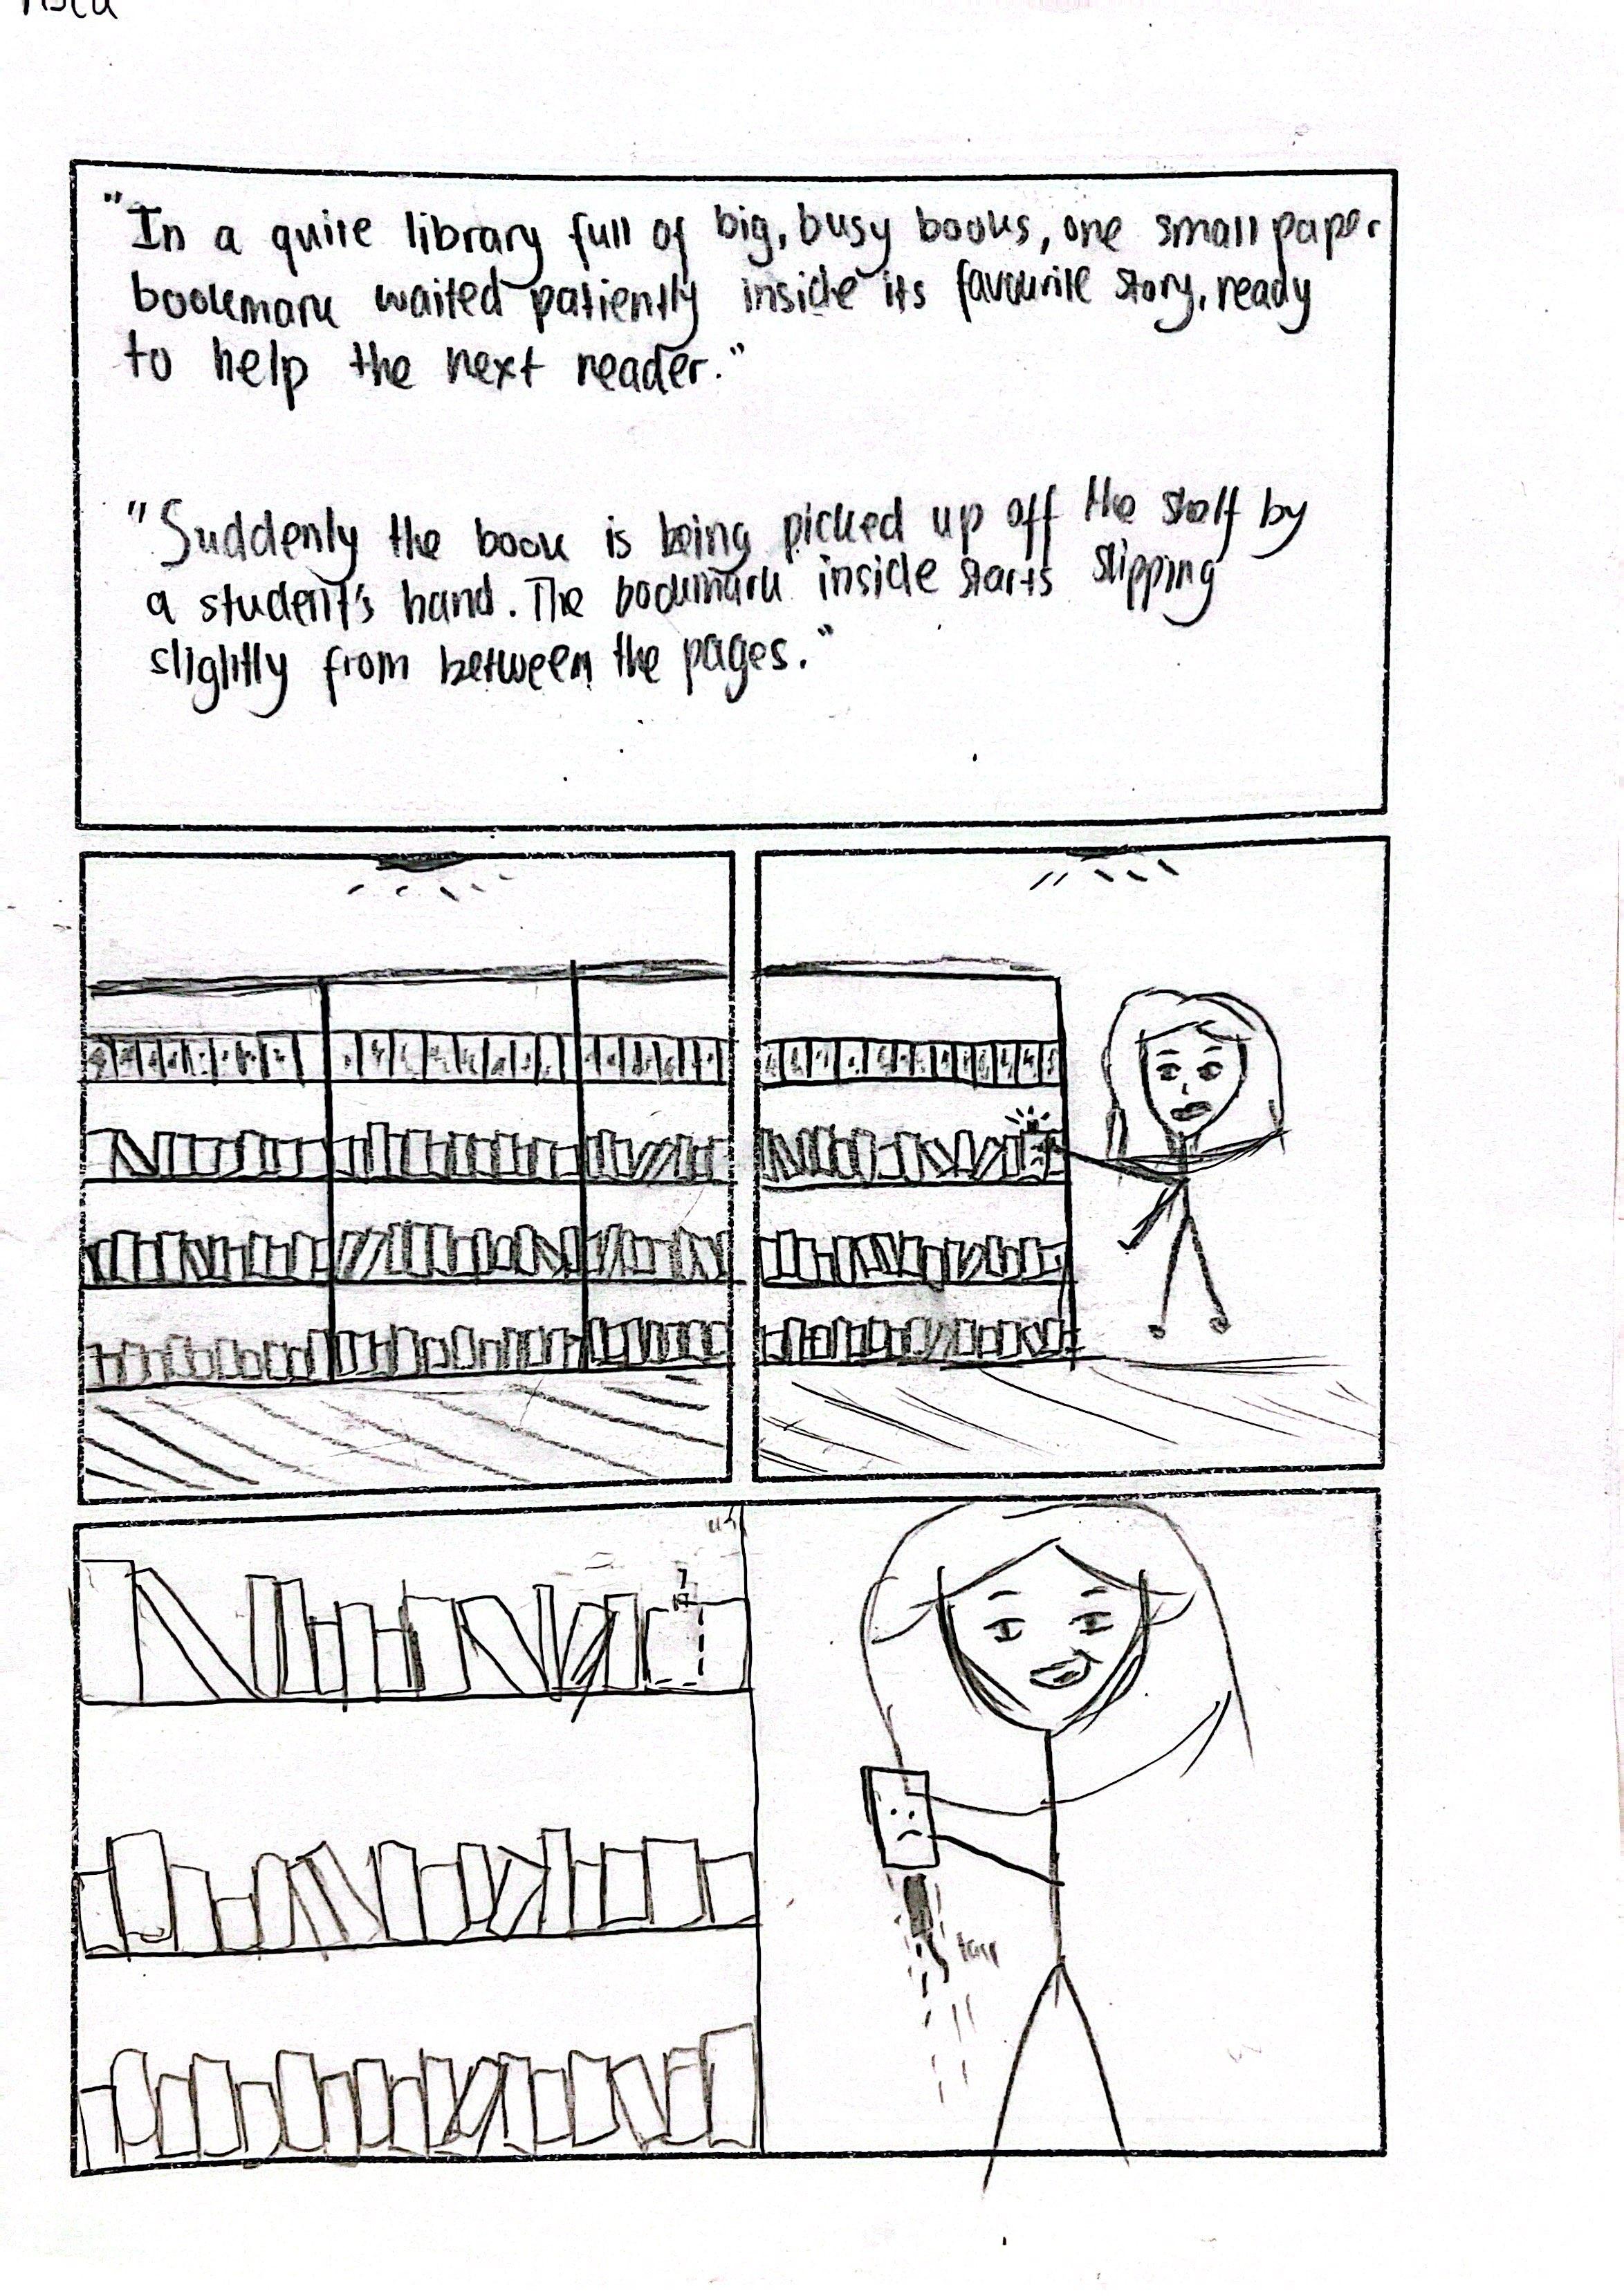 "In a quite library full of big, busy books, one small paper
bookmark waited patiently inside its favourite story, ready
to help the next reader."
"Suddenly the book is being picked up off the shelf by
a student's hand. The bookmark inside starts slipping
slightly from between the pages."